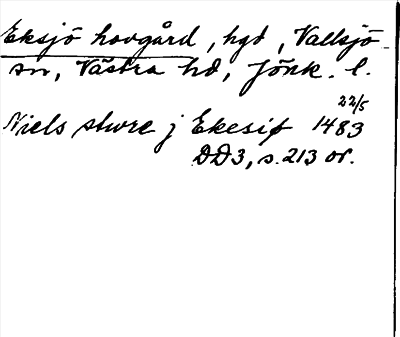 Eksjö hovgård, hgd, Vallsjö
sn, Västra hd, Jönk. l.
22/5
Niels sture j Ekesiø 1483
DD3, s. 213 or.